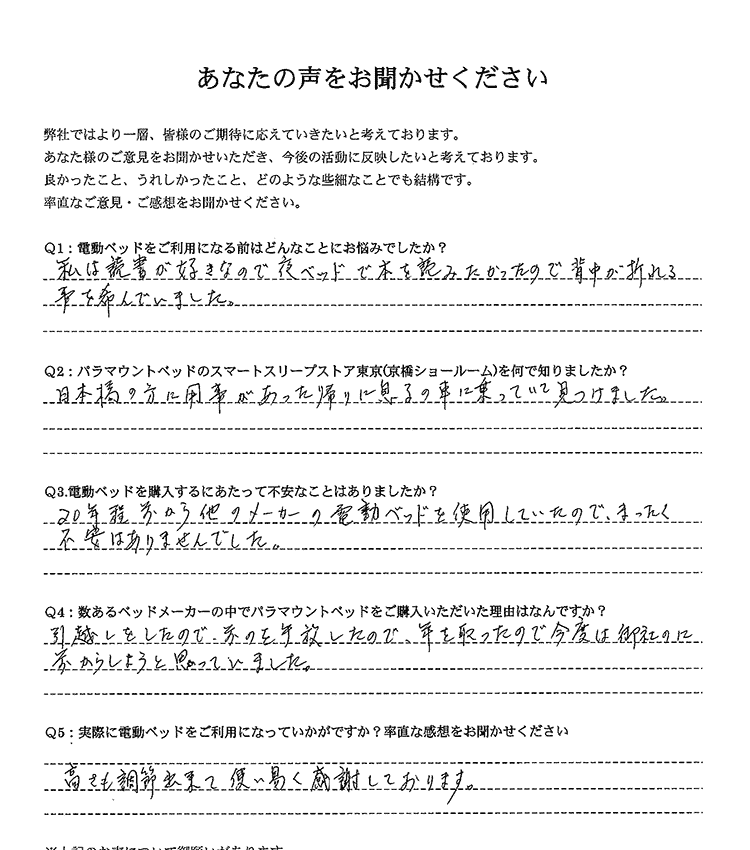 あなたの声をお聞かせください
弊社ではより一層、皆様のご期待に応えていきたいと考えております。
あなた様のご意見をお聞かせいただき、今後の活動に反映したいと考えております。
良かったこと、うれしかったこと、どのような些細なことでも結構です。
率直なご意見・ご感想をお聞かせください。
Q1：電動ベッドをご利用になる前はどんなことにお悩みでしたか？
私は読書が好きなので夜ベッドで本を読みたかったので背中が折れる
事を希んでいました。
Q2：パラマウントベッドのスマートスリープストア東京(京橋ショールーム)を何で知りましたか？
日本橋の方に用事があった帰りに息子の車に乗っていて見つけました。
Q3.電動ベッドを購入するにあたって不安なことはありましたか？
20年程前から他のメーカーの電動ベッドを使用していたので、まったく
不安はありませんでした。
Q4：数あるベッドメーカーの中でパラマウントベッドをご購入いただいた理由はなんですか？
引越しをしたので、前のを手放したので、年を取ったので今度は御社のに
前からしようと思っていました。
Q5：実際に電動ベッドをご利用になっていかがですか？率直な感想をお聞かせください
高さも調節出来て使い易く感謝しております。